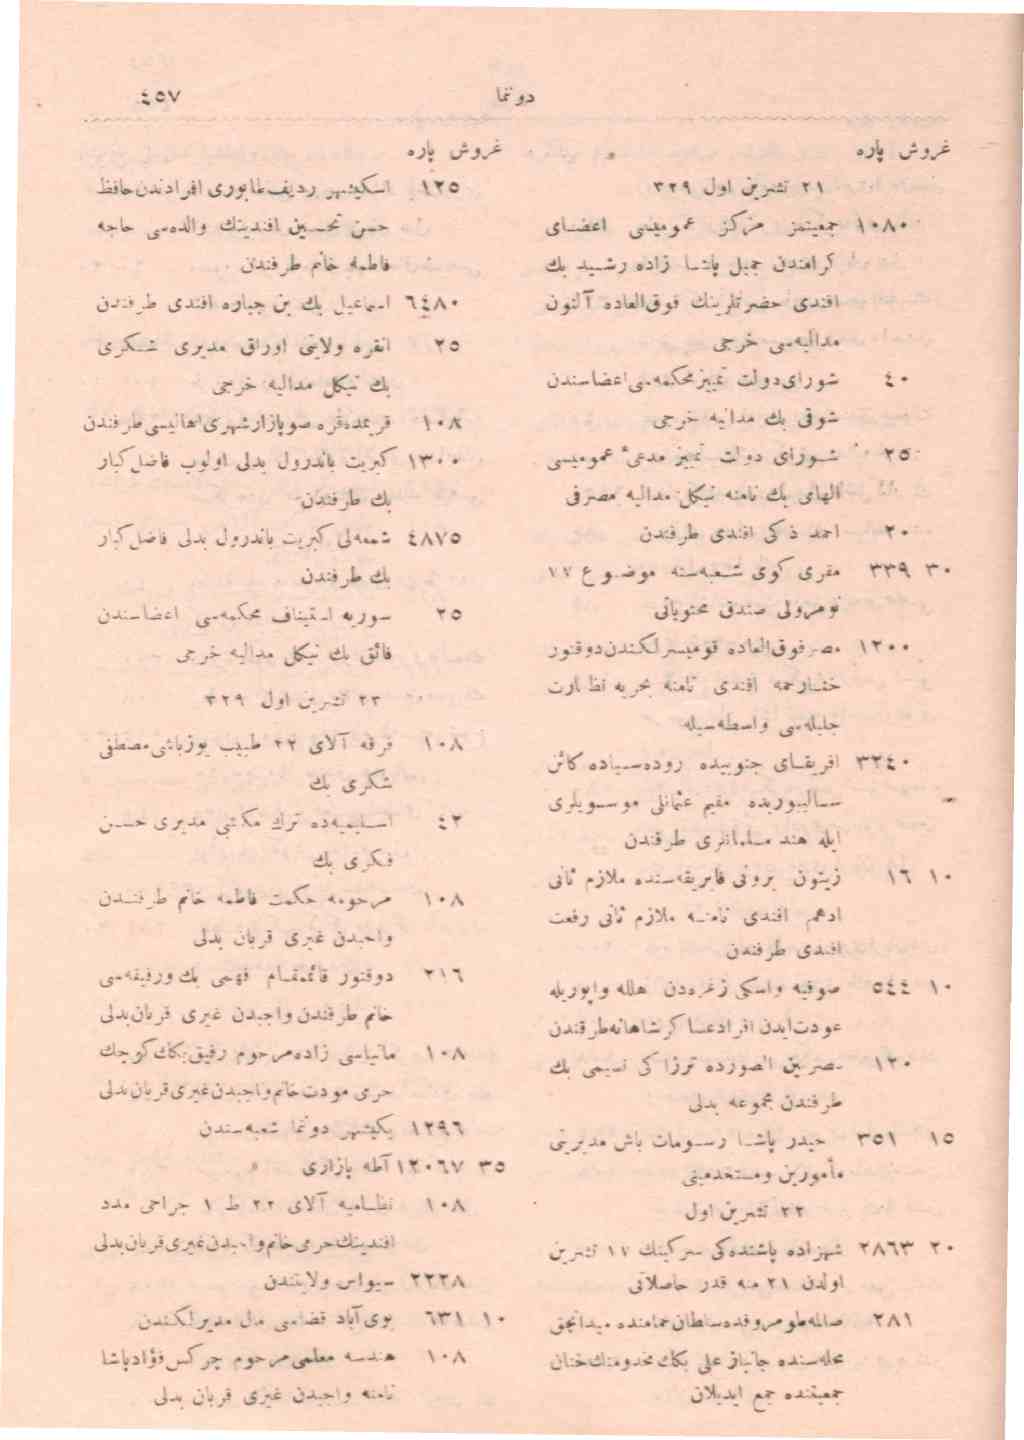 دوننما ٤٥٧
غروش پاره
٢١ تشرین اول ٣٢٩
١٠٨٠ جمعیتمز مرکز عمومیسی اعضای
کرامندن جمیل پاشا زاده رشید بك
افندی حضرتلرینك فوق‌العاده آلتون
مدالیه‌سی خرجی
٤٠ شورای دولت تمییز محکمه‌سی اعضاسندن
شوقی بك مدالیه خرجی
٢٥ شورای دولت تمییز مدعیٔ عمومیسی
الهامی بك نامنه نیکل مدالیه مصرفی
٢٠ احمد ذکی افندی طرفندن
٣٠ ٣٣٩ مقری کوی شعبه‌سنه موضوع ١٧
نومرولی صندق محتویاتی
١٢٠٠ مصر فوق‌العاده قومیسرلکندن دوقتور
افندی نامنه بحریه نظارت
جلیله‌سی واسطه‌سیله
٣٢٤٠ افریقای جنوبیده روده‌سیاده کائن
سالیبوریده مقیم عثمانلی موسویلری
ایله هند مسلمانلری طرفندن
١٠ ١٦ زیتون برونی فابریقه‌سنده ملازم ثانی
ادهم افندی نامنه ملازم ثانی رفعت
افندی طرفندن
١٠ ٥٤٤ صوفیه واسکی زغره‌دن هلله واپوریله
عودت ایدن افراد عساکر شاهانه طرفندن
١٢٠ نصیمی بك
طرفندن مجموعه بدلی
١٥ ٣٥١ حیدر پاشا رسومات باش مدیریتی
مأمورین ومستخدمینی
٢٢ تشرین اول
٢٠ ٢٨٦٣ شهزاده باشنده‌کی سرکینك ١٧ تشرین
اولدن ٢١ منه قدر حاصلاتی
٢٨١ سلطان حمامنده میدانجق
محله‌سنده جانباز علی بکك مخدومنك ختان
جمعیتنده جمع ایدیلان
غروش پاره
١٢٥ اسکیشهر ردیف طابوری افرادندن حافظ
حسن تحسین افندینك والده‌سی حاجه
فاطمه خانم طرفندن
٦٤٨٠ اسماعیل بك بن جباره افندی طرفندن
٢٥ انقره ولایتی اوراق مدیری شکری
بك نیکل مدالیه خرجی
١٠٨ قریمده قره صو بازار شهری اهالیسی طرفندن
١٣٠٠ کبریت باندرول بدلی اولوب فاضل کبار
بك طرفندن
٤٨٧٥ شمعه‌لی کبریت باندرول بدلی فاضل کبار
بك طرفندن
٢٥ سوریه استیناف محکمه‌سی اعضاسندن
فائق بك نیکل مدالیه خرجی
٢٣ تشرین اول ٣٢٩
١٠٨ فرقه آلای ٤٢ طبیب یوزباشی مصطفی
شکری بك
٤٢ اسلیمیه‌ده ترك مکتبی مدیری حسن
فکری بك
١٠٨ مرحومه حکمت فاطمه خانم طرفندن
واجبدن غیری قربان بدلی
٢١٦ دوقتور قائمقام فهمی بك ورفیقه‌سی
خانم طرفندن واجبدن غیری قربان بدلی
١٠٨ مانیاسی زاده مرحوم رفیق بکك کوچك
حرمی مودت خانم واجبدن غیری قربان بدلی
١٢٩٦ یکیشهر دوننما شعبه‌سندن
٣٥ ١٢٠٦٧ آطه پازاری "
١٠٨ نظامیه آلای ٢٢ ط ١ جراحی مدد
افندینك حرمی خانم واجبدن غیری قربان بدلی
٢٢٢٨ سیواس ولایتندن
١٠ ٦٣١ بوی آباد قضاسی مال مدیرلکندن
١٠٨ هندسه معلمی مرحوم چرکس فؤاد پاشا
نامنه واجبدن غیری قربان بدلی